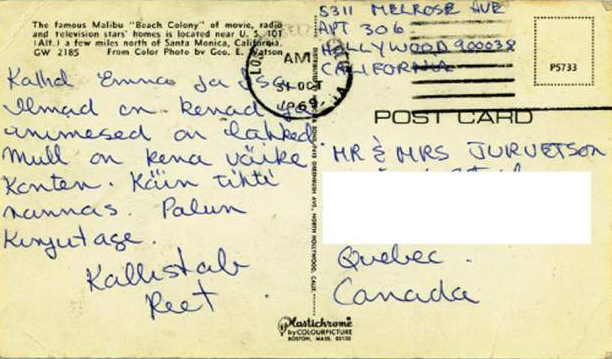 The famous Malibu "Beach Colony" of movie, radio
and television stars' homes is located near U. S. 101
(Alt.) a few miles north of Santa Monica, California.
GW 2185 From Color Photo by Geo. E. Watson
Kallid Emme ja Isa
Ilmad on kenad ja
inimesed on lahked
Mull on kena väike
korter. Käin tihti
rannas. Palun
Kirjutage.
Kallistab
Reet
AM
31 OCT
1969
5311 MELROSE AVE
APT 306
HOLLYWOOD 900038
CALIFORNIA
P5733
POST CARD
MR & MRS JURVETSON
Quebec.
Canada
Plastichrome
by COLOURPICTURE
BOSTON, MASS. 02130